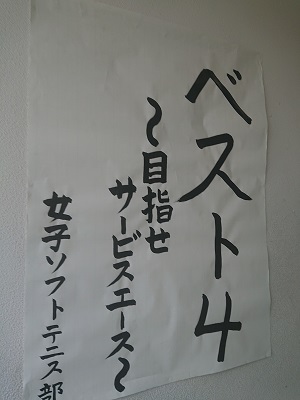 ベスト4
〜目指せ
サービスエース〜
女子ソフトテニス部